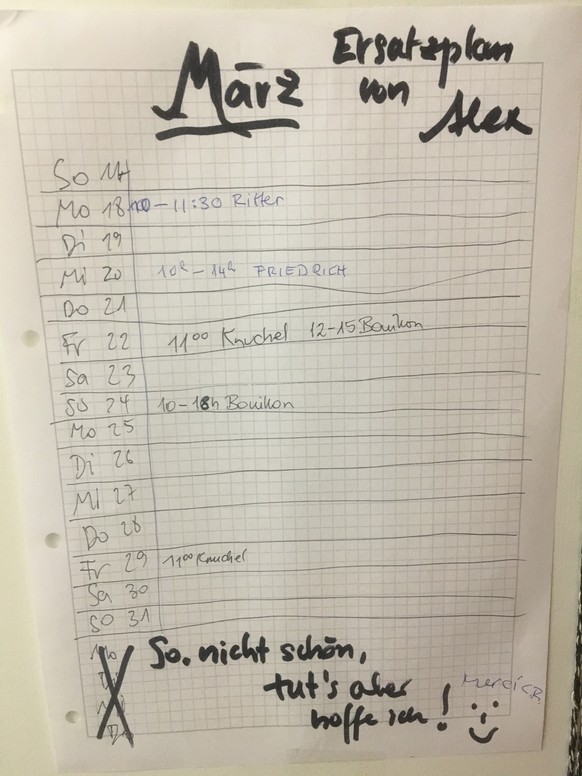 März
Ersatzplan
von
Alex
So 17
Mo 18 - 11:30 Ritter
Di 19
Mi 20 10h - 14h FRIEDRICH
Do 21
Fr 22 11 00 Knuchel 12-15 Bouikon
Sa 23
So 24 10-18h Bouikon
Mo 25
Di 26
Mi 27
Do 28
Fr 29 11 00 Knuchel
Sa 30
SO 31
Mo
Di
Mi
Do
So, nicht schön,
tut's aber
hoffe ich!
Merci